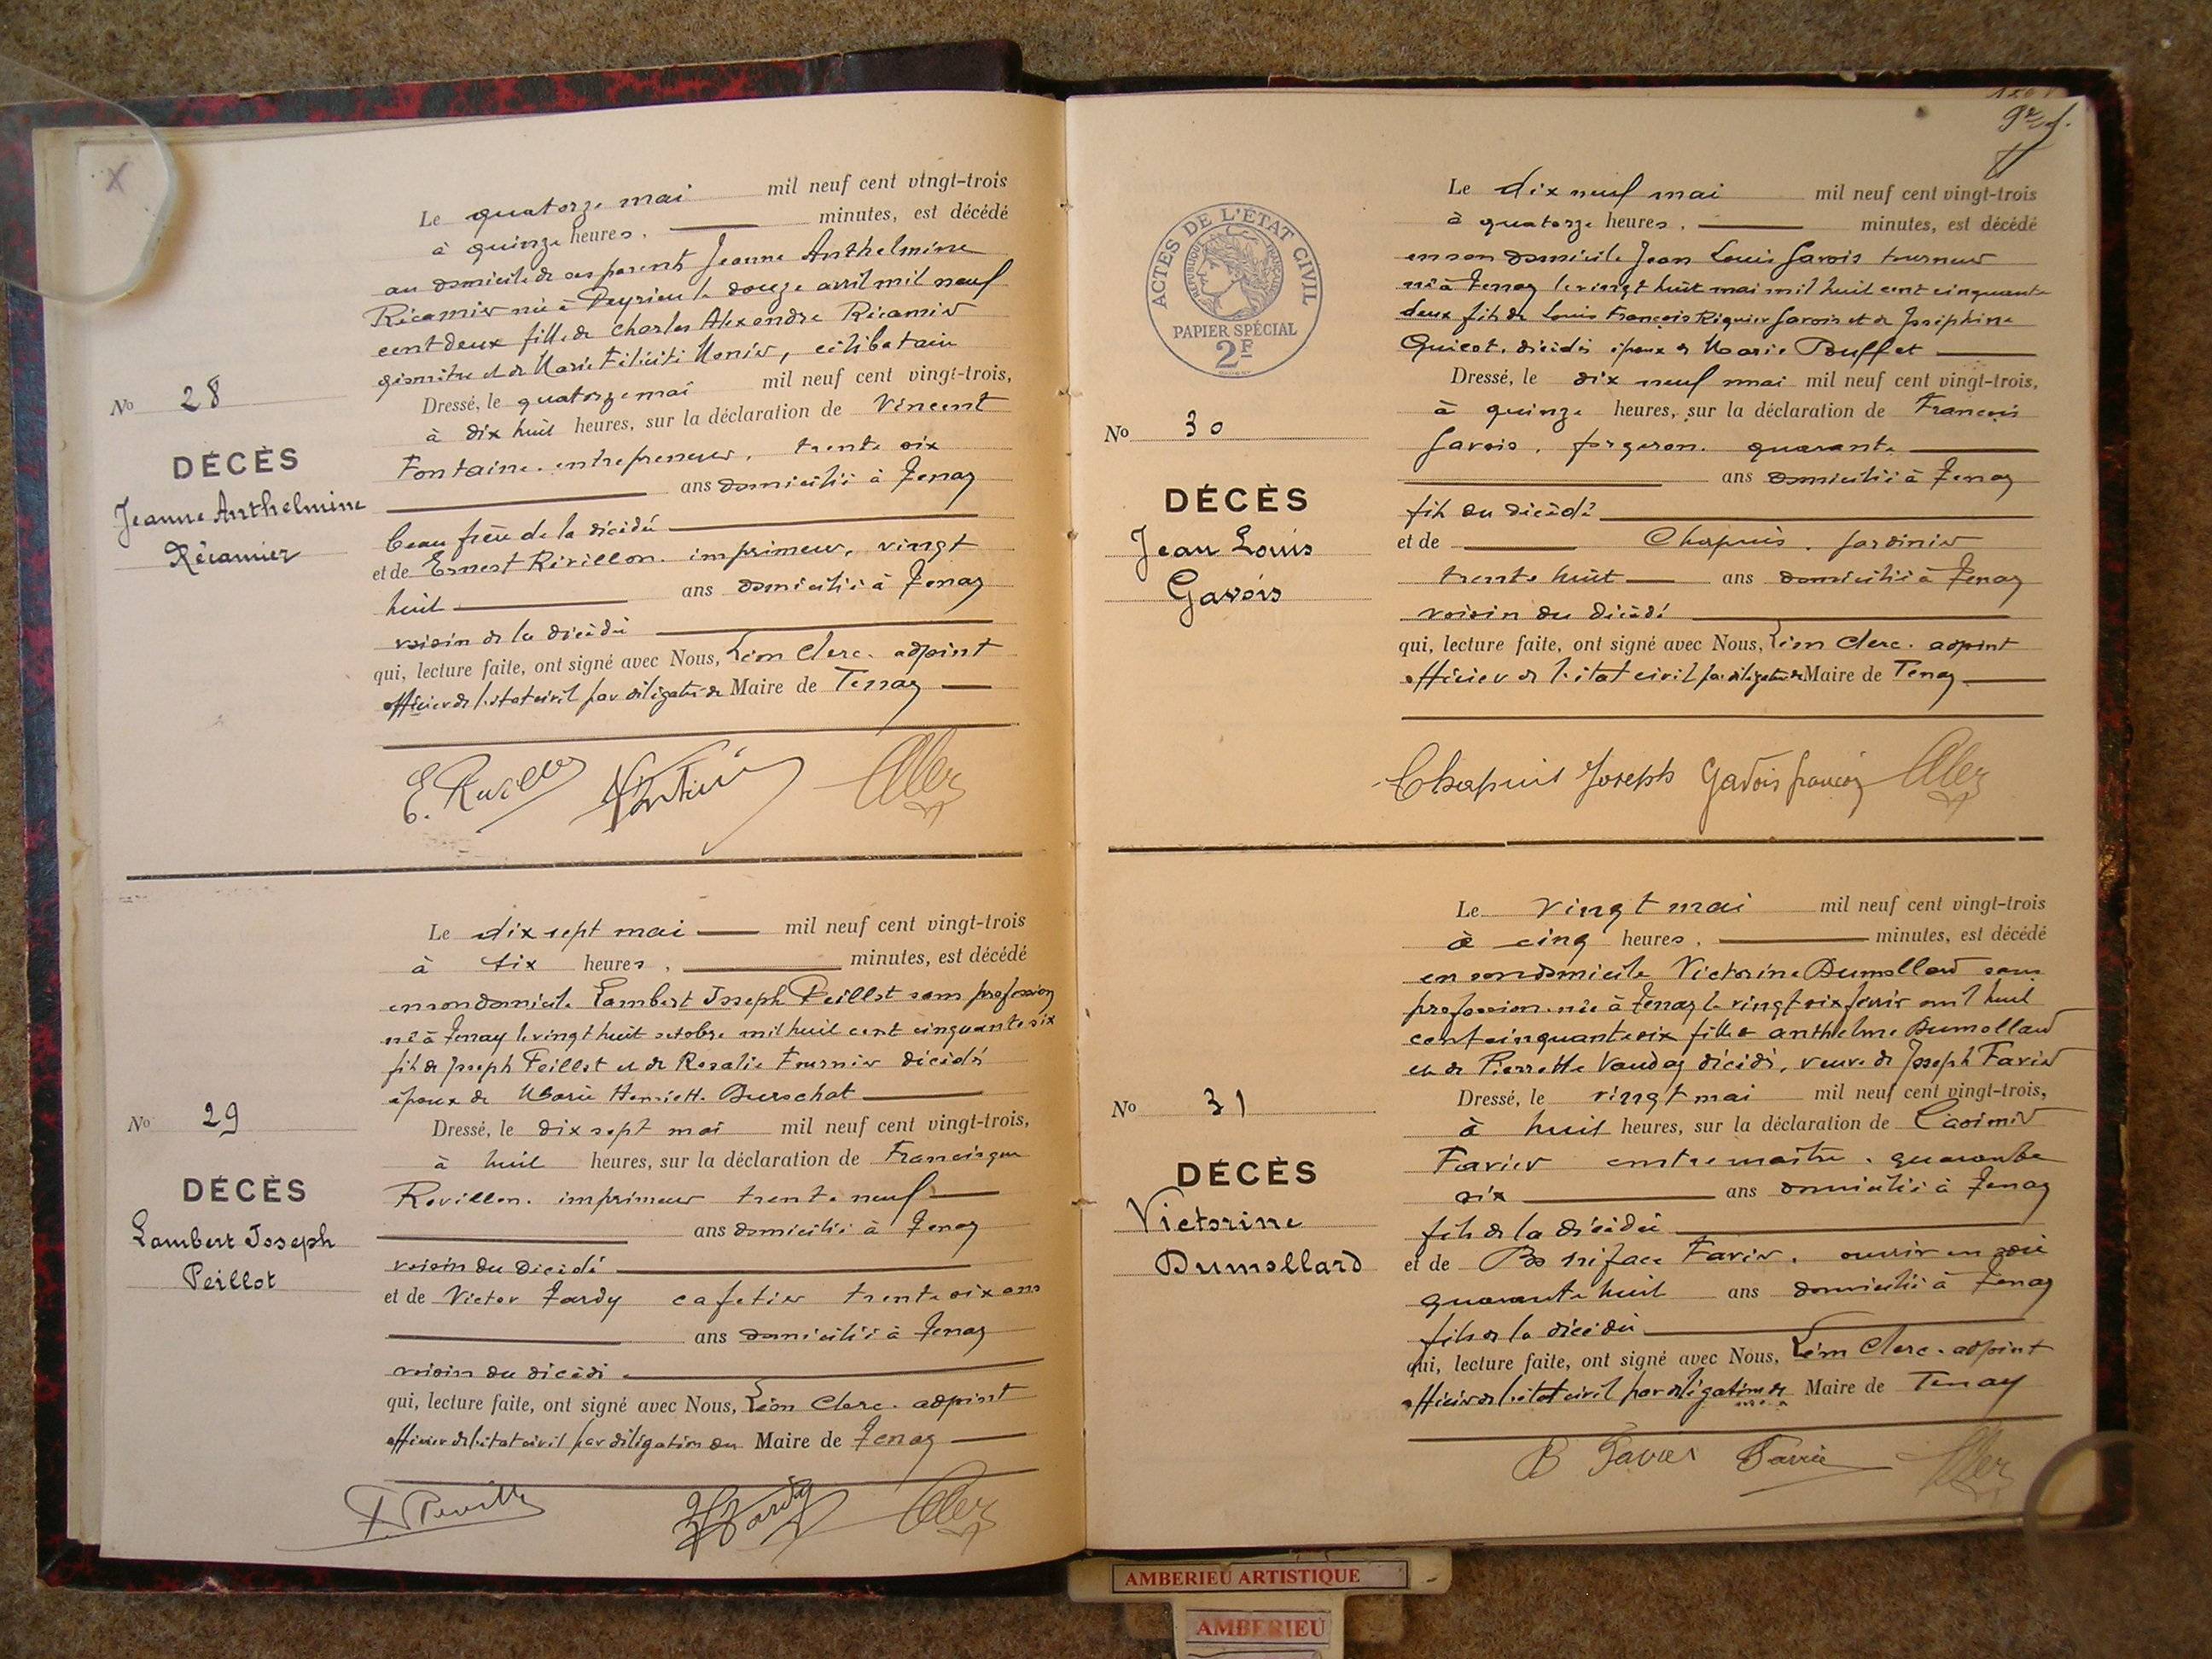 Le quatorze mai mil neuf cent vingt-trois
à quinze heures, minutes, est décédé
au domicile de ses parents Jeanne Anthelmine
Récamier née à Peyrieu le douze avril mil neuf
cent deux fille de Charles Alexandre Récamier
et de Marie Félicité Monier, célibataire
Dressé, le quatorze mai mil neuf cent vingt-trois,
à dix huit heures, sur la déclaration de Vincent
Fontaine, entrepreneur, trente six
ans domicilié à Tenay
beau frère de la décédée
et de Ernest Révillon, imprimeur, vingt
huit ans domicilié à Tenay
voisin de la décédée
qui, lecture faite, ont signé avec Nous, Léon Clerc, adjoint
officier de l'état civil par délégation de Maire de Tenay
No 28
DÉCÈS
Jeanne Anthelmine
Récamier
Le dix sept mai mil neuf cent vingt-trois
à six heures, minutes, est décédé
en son domicile Lambert Joseph Peillot sans profession
né à Tenay le vingt huit octobre mil huit cent cinquante six
fils de Joseph Peillot et de Rosalie Fournier décédés
époux de Marie Henriette Burochat
Dressé, le dix sept mai mil neuf cent vingt-trois,
à huit heures, sur la déclaration de Francisque
Révillon, imprimeur trente neuf
ans domicilié à Tenay
voisin du décédé
et de Victor Tardy cafetier trente six ans
ans domicilié à Tenay
voisin du décédé
qui, lecture faite, ont signé avec Nous, Léon Clerc, adjoint
officier de l'état civil par délégation du Maire de Tenay
No 29
DÉCÈS
Lambert Joseph
Peillot
ACTES DE L'ÉTAT CIVIL
RÉPUBLIQUE FRANÇAISE
PAPIER SPÉCIAL
2F
Le dix neuf mai mil neuf cent vingt-trois
à quatorze heures, minutes, est décédé
en son domicile Jean Louis Gavois tourneur
né à Tenay le vingt huit mai mil huit cent cinquante
deux fils de Louis François Régnier Gavois et de Joséphine
Quicot, décédés époux de Marie Buffet
Dressé, le dix neuf mai mil neuf cent vingt-trois,
à quinze heures, sur la déclaration de François
Gavois, forgeron, quarante
ans domicilié à Tenay
fils du décédé
et de Chapuis, jardinier
trente huit ans domicilié à Tenay
voisin du décédé
qui, lecture faite, ont signé avec Nous, Léon Clerc, adjoint
officier de l'état civil par délégation de Maire de Tenay
Chapuis Joseph Gavois françois
No 30
DÉCÈS
Jean Louis
Gavois
Le vingt mai mil neuf cent vingt-trois
à cinq heures, minutes, est décédé
en son domicile Victorine Dumollard sans
profession née à Tenay le vingt six février mil huit
cent cinquante six fille de Anthelme Dumollard
et de Pierrette Vauday décédés, veuve de Joseph Favier
Dressé, le vingt mai mil neuf cent vingt-trois,
à huit heures, sur la déclaration de Casimir
Favier contremaître, quarante
six ans domicilié à Tenay
fils de la décédée
et de Boniface Favier, ouvrier en soie
quarante huit ans domicilié à Tenay
fils de la décédée
qui, lecture faite, ont signé avec Nous, Léon Clerc, adjoint
officier de l'état civil par délégation de Maire de Tenay
B Favier Favier
No 31
DÉCÈS
Victorine
Dumollard
AMBERIEU ARTISTIQUE
AMBERIEU